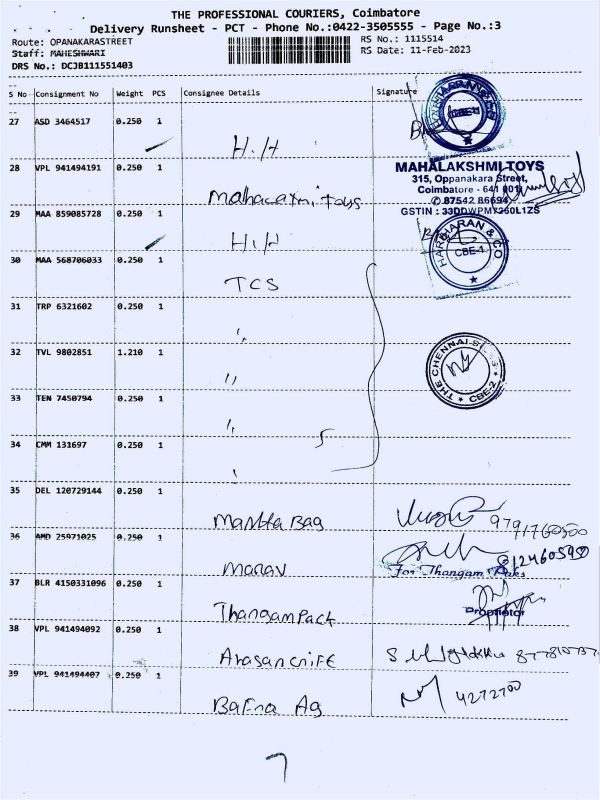 THE PROFESSIONAL COURIERS, Coimbatore
Delivery Runsheet - PCT - Phone No.:0422-3505555 - Page No.:3
Route: OPANAKARASTREET
RS No.: 1115514
Staff: MAHESHWARI
RS Date: 11-Feb-2023
DRS No.: DCJB111551403
S No Consignment No Weight PCS Consignee Details Signature
27 ASD 3464517 0.250 1
H.H
28 VPL 941494191 0.250 1
Mahalaxmi Toys
MAHALAKSHMI TOYS
315, Oppanakara Street,
Coimbatore - 641 001
✆ 87542 86694
GSTIN : 33DDWPM7260L1ZS
29 MAA 859085728 0.250 1
H.H
HARIHARAN & CO
CBE-1
30 MAA 568706033 0.250 1
TCS
31 TRP 6321602 0.250 1
"
32 TVL 9802851 1.210 1
"
THE CHENNAI SILKS
CBE-2
33 TEN 7450794 0.250 1
"
34 CMM 131697 0.250 1
5
35 DEL 120729144 0.250 1
Mamta Bag
9791760500
36 AMD 25971025 0.250 1
Manav
For Thangam
37 BLR 4150331096 0.250 1
Thangam Pack
Proprietor
38 VPL 941494092 0.250 1
39 VPL 941494407 0.250 1
Bafna Ag
4272700
7